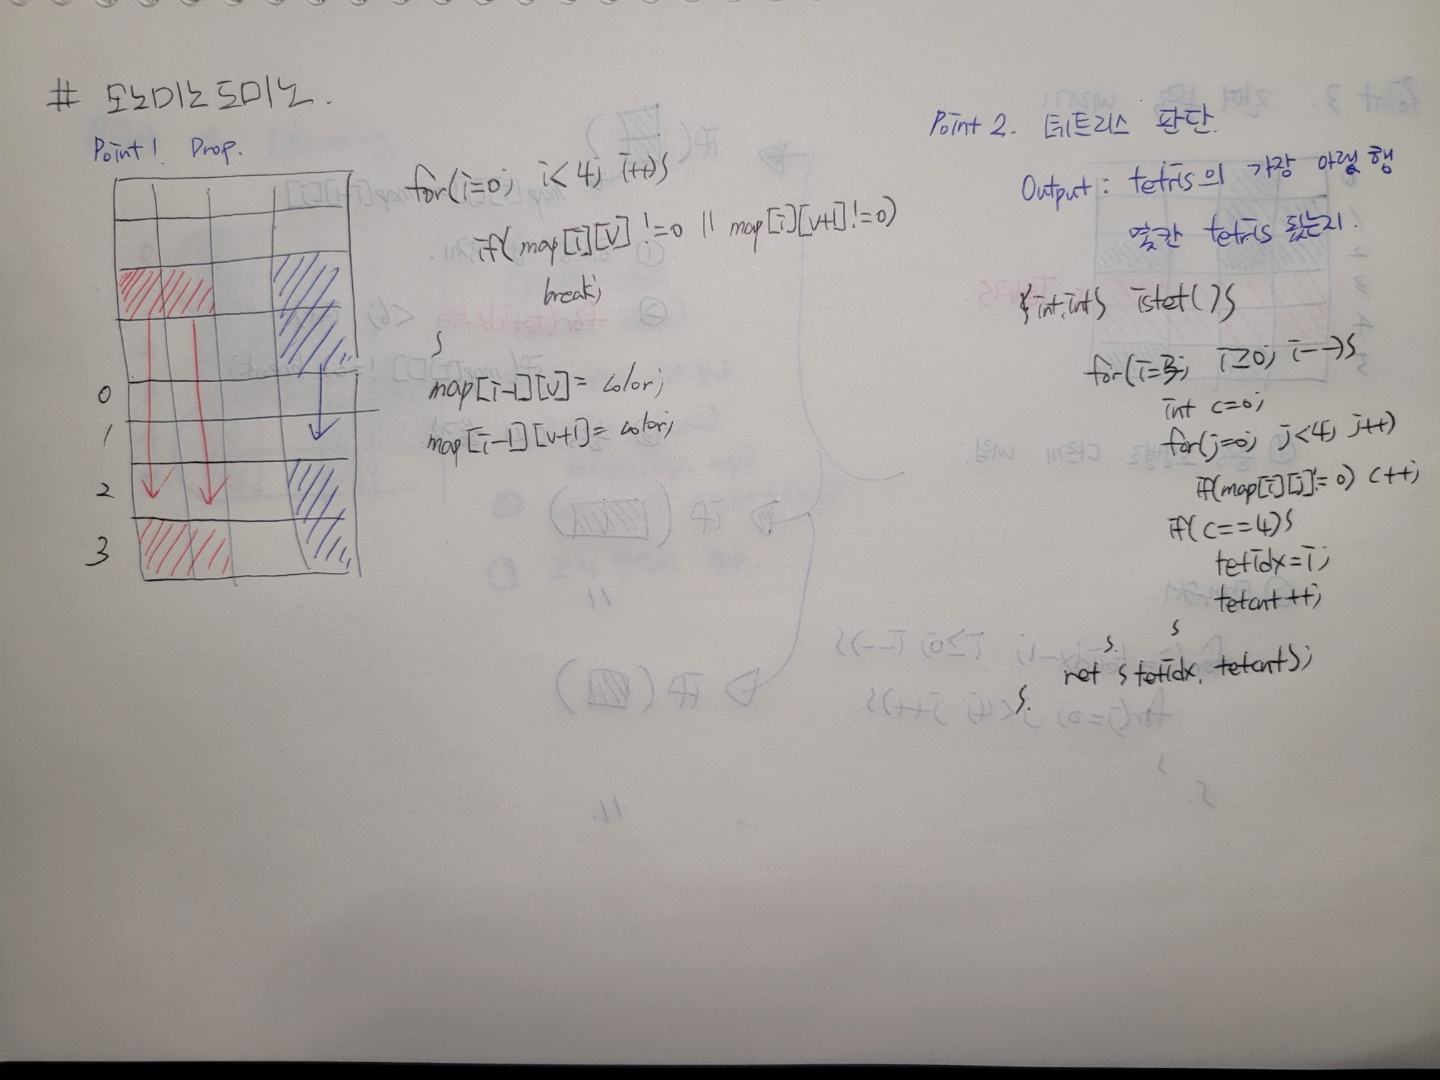 # 모노미노도미노.
Point 1. Drop.
0
1
2
3
for(i=0; i<4; i++){
if(map[i][v]!=0 || map[i][v+1]!=0)
break;
}
map[i-1][v]= color;
map[i-1][v+1]= color;
Point 2. 테트리스 판단.
Output: tetris의 가장 아랠 행
몇칸 tetris 됐는지.
{int,int} istet(){
for(i=3; i≥0; i--){
int c=0;
for(j=0; j<4; j++)
if(map[i][j]!=0) c++;
if(c==4){
tetidx=i;
tetcnt++;
}
}
ret {tetidx, tetcnt};
}.